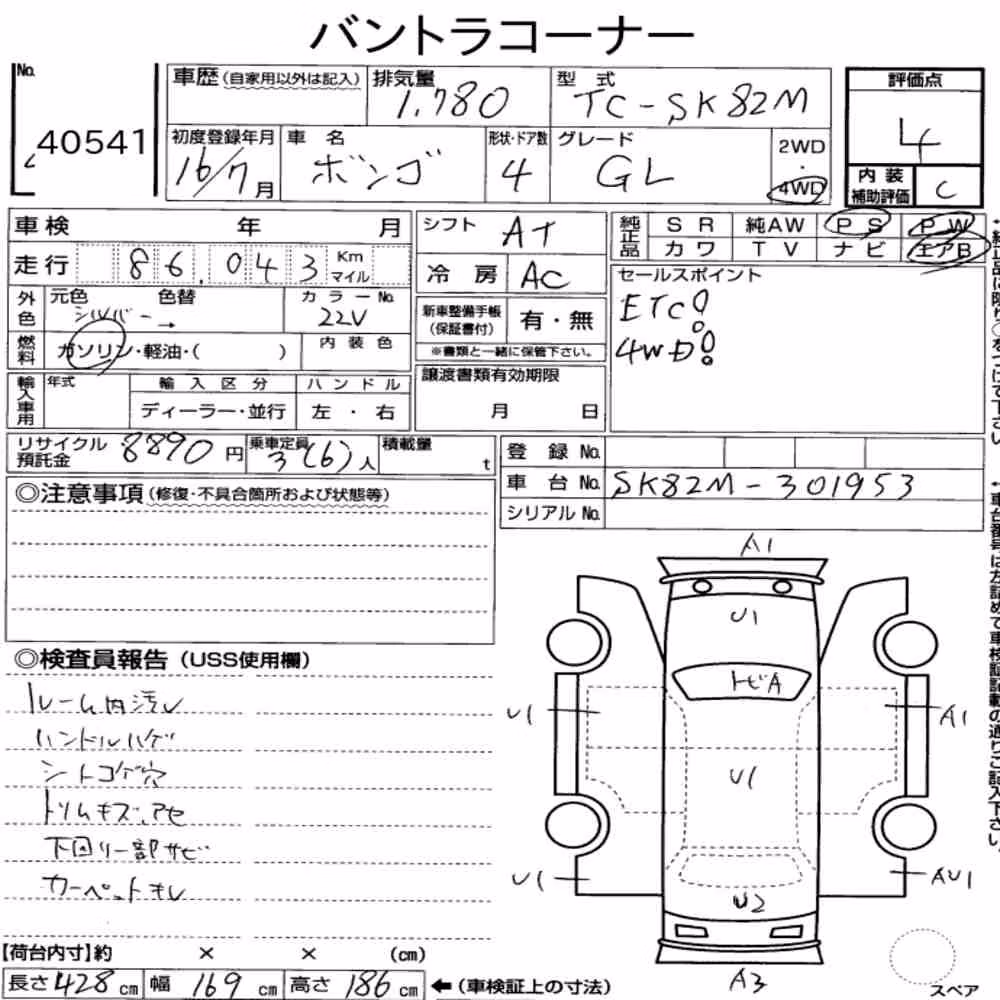 バントラコーナー
No.
40541
車歴(自家用以外は記入)
排気量
1,780
型式
TC-SK82M
評価点
4
初度登録年月
16/7月
車名
ボンゴ
形状・ドア数
4
グレード
GL
2WD
・
4WD
内装
補助評価
C
車検 年 月
シフト
AT
純正品
SR 純AW PS PW
カワ TV ナビ エアB
走行 86,043 Km
マイル
冷房
AC
セールスポイント
ETC!
4WD!
外色
元色 色替
シルバー→
カラーNo.
22V
新車整備手帳
(保証書付)
有・無
※書類と一緒に保管下さい。
燃料
ガソリン・軽油・( )
内装色
輸入車用
年式
輸入区分
ハンドル
ディーラー・並行
左・右
譲渡書類有効期限
月 日
リサイクル
預託金
8890円
乗車定員
3(6)人
積載量
t
登録No.
車台No.
SK82M-301953
シリアルNo.
◎注意事項(修復・不具合箇所および状態等)
◎検査員報告(USS使用欄)
ルーム内汚レ
ハンドルハゲ
シートコゲ穴
トリムキズ、アセ
下回り一部サビ
カーペットキレ
A1
U1
トビA
U1
A1
U1
U1
AU1
U2
A3
スペア
【荷台内寸】約 × × (cm)
長さ428cm 幅169cm 高さ186cm ←(車検証上の寸法)